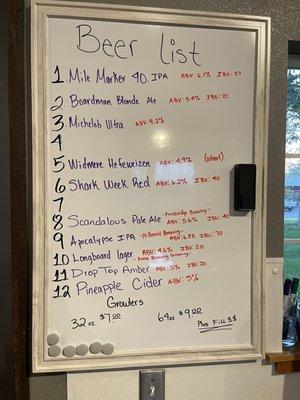 Beer List
1. Mile Marker 40. IPA ABV: 6.1% IBU: 57
2 Boardman Blonde Ale ABV: 5.4% IBU: 21
3. Michelob Ultra ABV: 4.2%
4
5 Widmere Hefeweizen ABV: 4.9% (wheat)
6 Shark Week Red ABV: 6.2% IBU: 40
7
8 Scandalous Pale Ale - Freebridge Brewing - ABV: 5.6% IBU: 40
9 Apocalypse IPA - 10 Barrel Brewing - ABV: 6.8% IBU: 70
10 Longboard lager - Kona Brewing Company - ABV: 4.6% IBU: 20
11 Drop Top Amber ABV: 5% IBU: 20
12 Pineapple Cider ABV: 5%
Growlers
32oz $7.00 64oz $9.00
Plus Fill $$